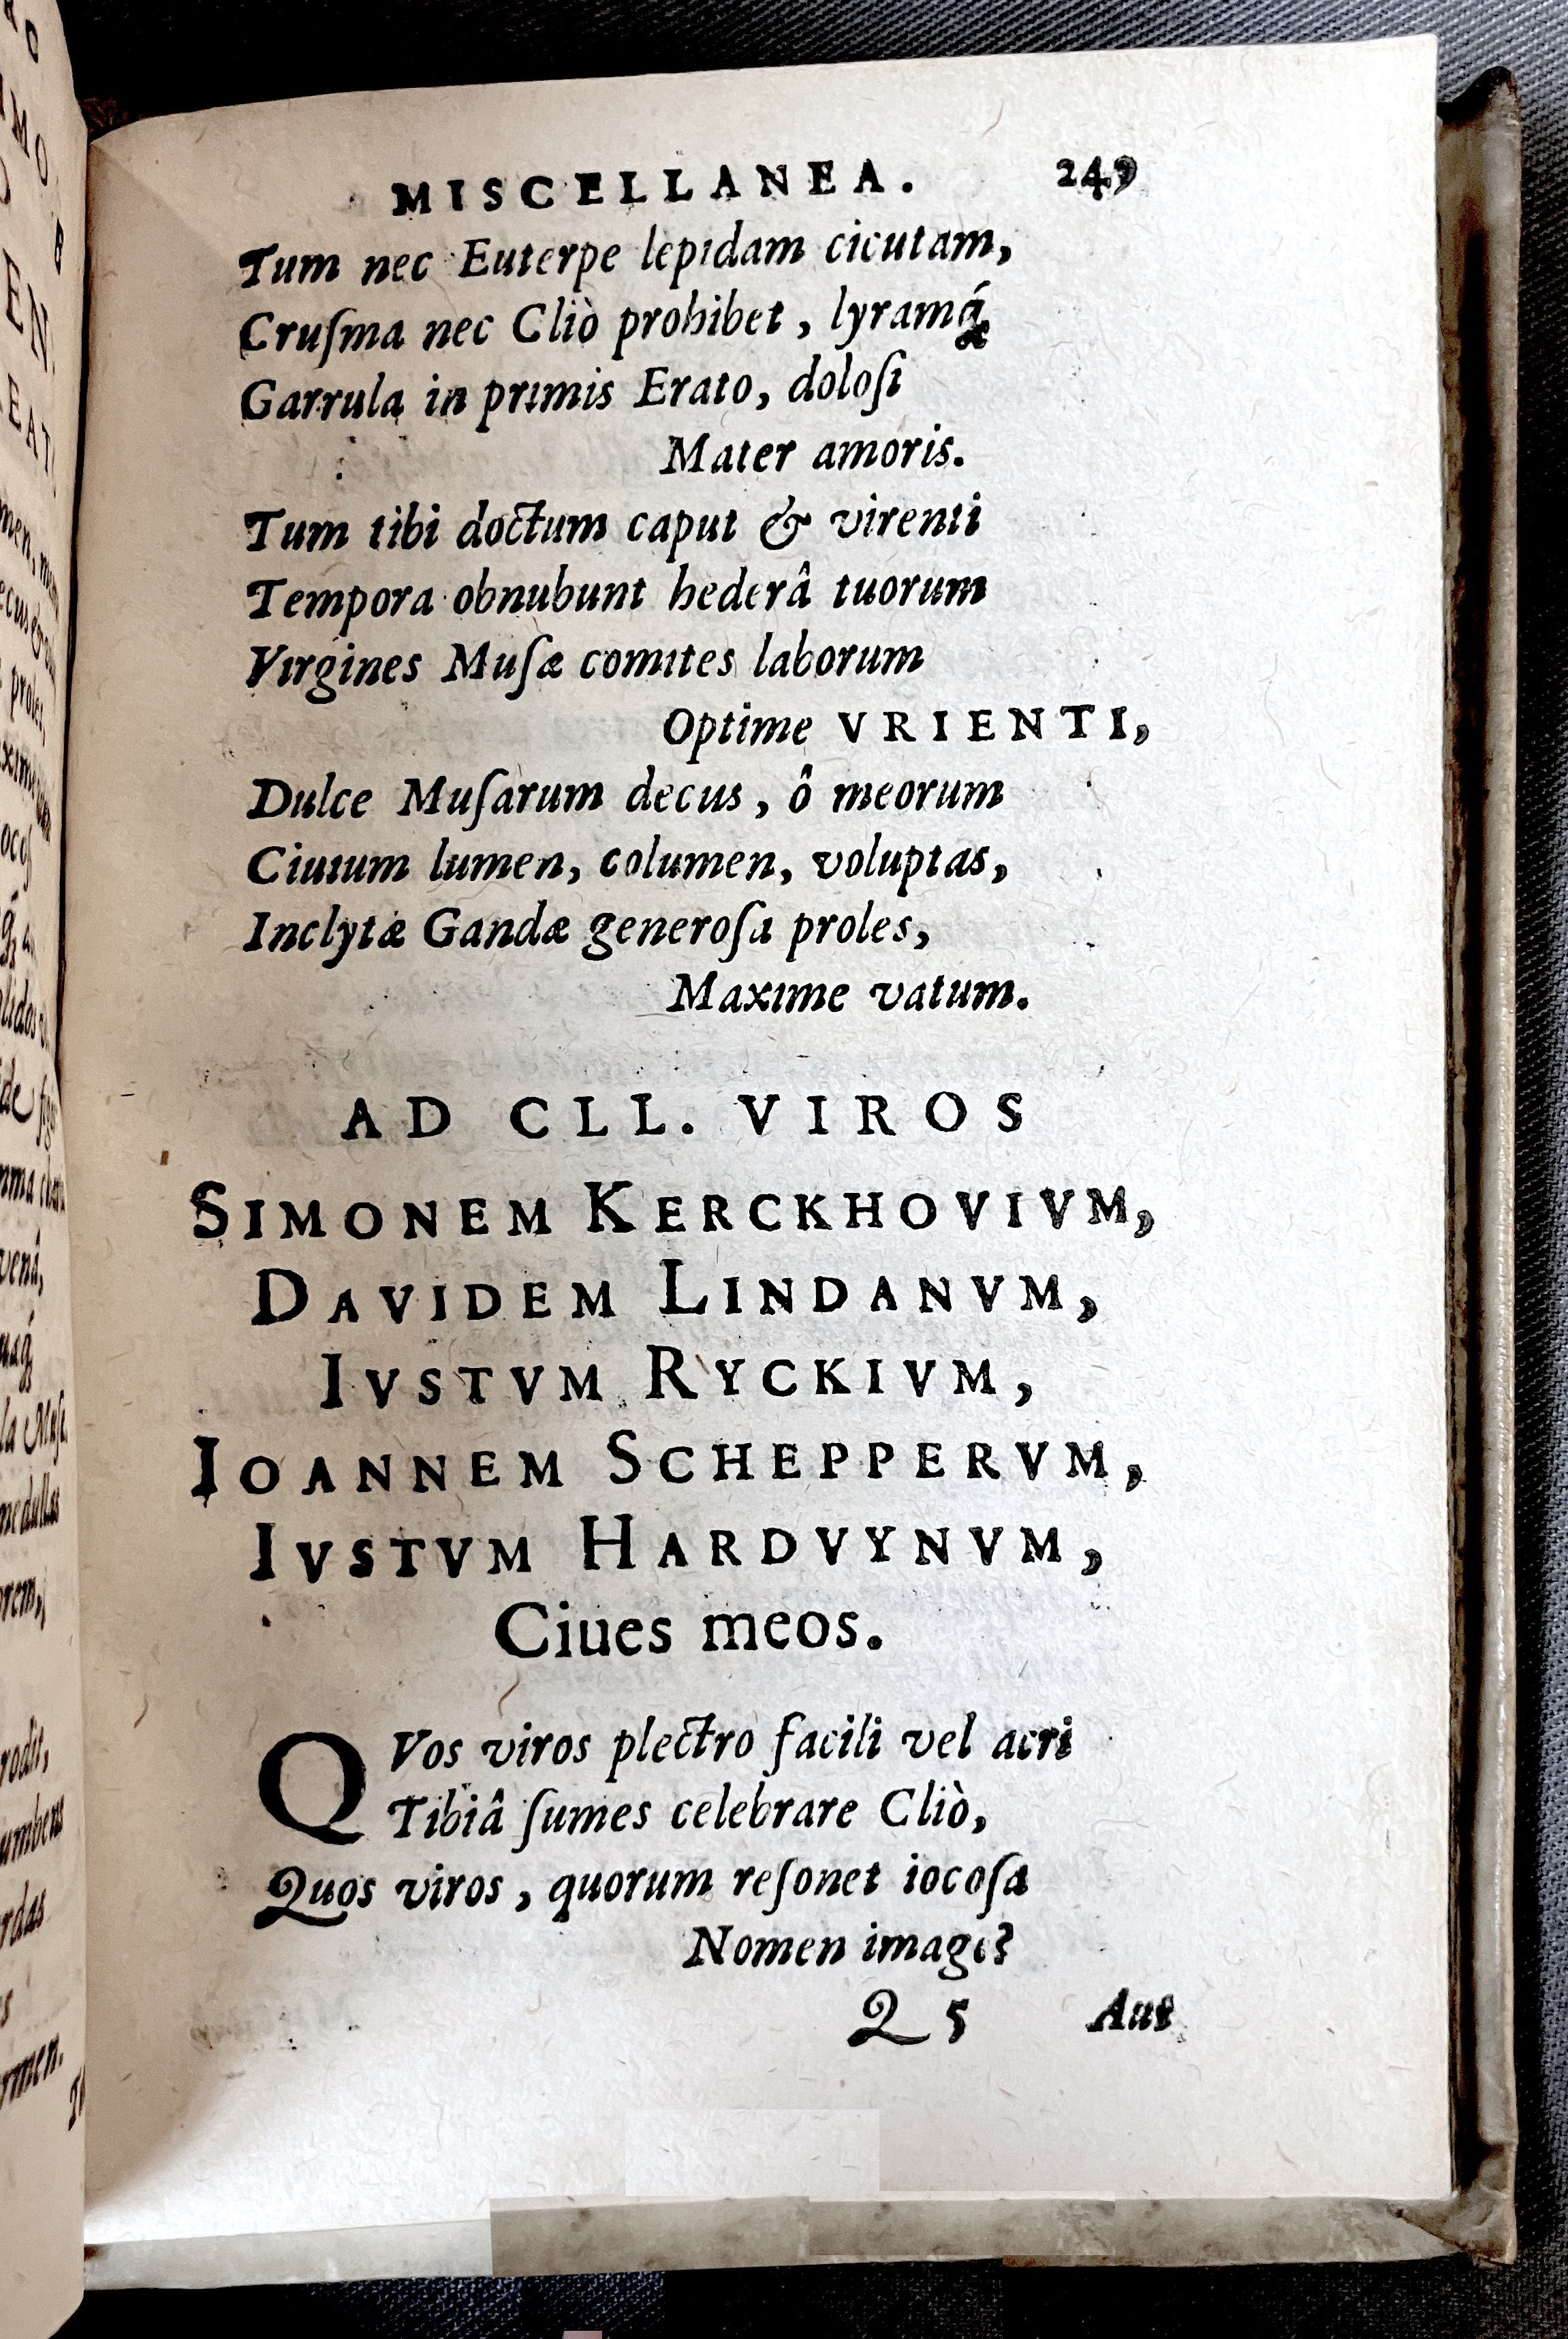 MISCELLANEA. 249
Tum nec Euterpe lepidam cicutam,
Cruſma nec Cliò prohibet, lyramq́;
Garrula in primis Erato, doloſi
Mater amoris.
Tum tibi doctum caput & virenti
Tempora obnubunt hederâ tuorum
Virgines Muſæ comites laborum
Optime VRIENTI,
Dulce Muſarum decus, ô meorum
Ciuium lumen, columen, voluptas,
Inclytæ Gandæ generoſa proles,
Maxime vatum.
AD CLL. VIROS
SIMONEM KERCKHOVIVM,
DAVIDEM LINDANVM,
IVSTVM RYCKIVM,
IOANNEM SCHEPPERVM,
IVSTVM HARDVYNVM,
Ciues meos.
QVos viros plectro facili vel acri
Tibiâ ſumes celebrare Cliò,
Quos viros, quorum reſonet iocoſa
Nomen image?
Q 5 Aut